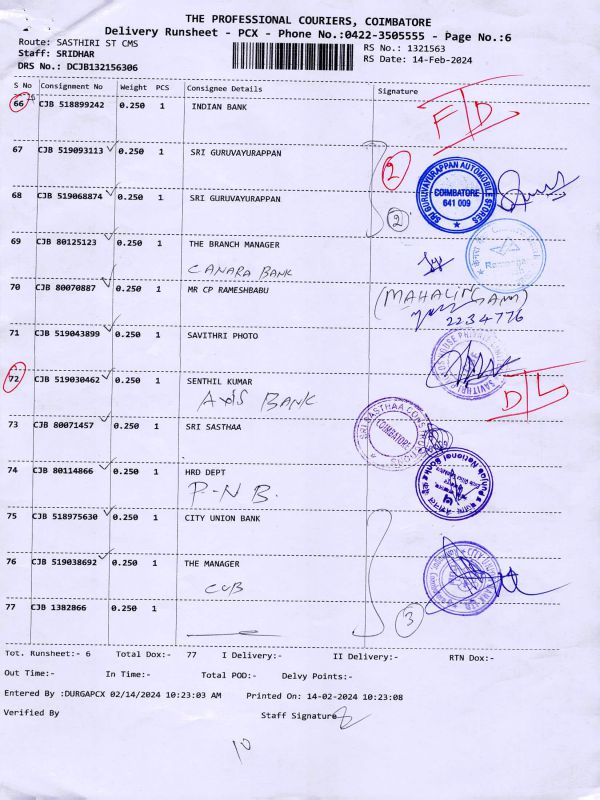 THE PROFESSIONAL COURIERS, COIMBATORE
Delivery Runsheet - PCX - Phone No.:0422-3505555 - Page No.:6
Route: SASTHIRI ST CMS
RS No.: 1321563
Staff: SRIDHAR
RS Date: 14-Feb-2024
DRS No.: DCJB132156306
S No Consignment No Weight PCS Consignee Details Signature
66 CJB 518899242 0.250 1 INDIAN BANK
67 CJB 519093113 0.250 1 SRI GURUVAYURAPPAN
2
SRI GURUVAYURAPPAN AUTOMOBILE STORES
COIMBATORE
641 009
68 CJB 519068874 0.250 1 SRI GURUVAYURAPPAN
2
69 CJB 80125123 0.250 1 THE BRANCH MANAGER
CANARA BANK
70 CJB 80070887 0.250 1 MR CP RAMESHBABU
(MAHALINGAM)
2234776
71 CJB 519043899 0.250 1 SAVITHRI PHOTO
72 CJB 519030462 0.250 1 SENTHIL KUMAR
AXIS BANK
D/L
73 CJB 80071457 0.250 1 SRI SASTHAA
COIMBATORE
74 CJB 80114866 0.250 1 HRD DEPT
P.N.B.
75 CJB 518975630 0.250 1 CITY UNION BANK
76 CJB 519038692 0.250 1 THE MANAGER
CUB
77 CJB 1382866 0.250 1
3
Tot. Runsheet:- 6 Total Dox:- 77 I Delivery:- II Delivery:- RTN Dox:-
Out Time:- In Time:- Total POD:- Delvy Points:-
Entered By :DURGAPCX 02/14/2024 10:23:03 AM Printed On: 14-02-2024 10:23:08
Verified By Staff Signature
10